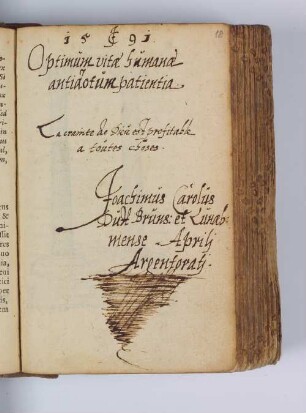 15 91
Optimum vitæ humanæ
antidotum patientia.
La crainte de Dieu est profitable
a toutes choses.
Joachimus Carolus
Dux Bruns: et Lunæb:
mense Aprili
Argentorati.